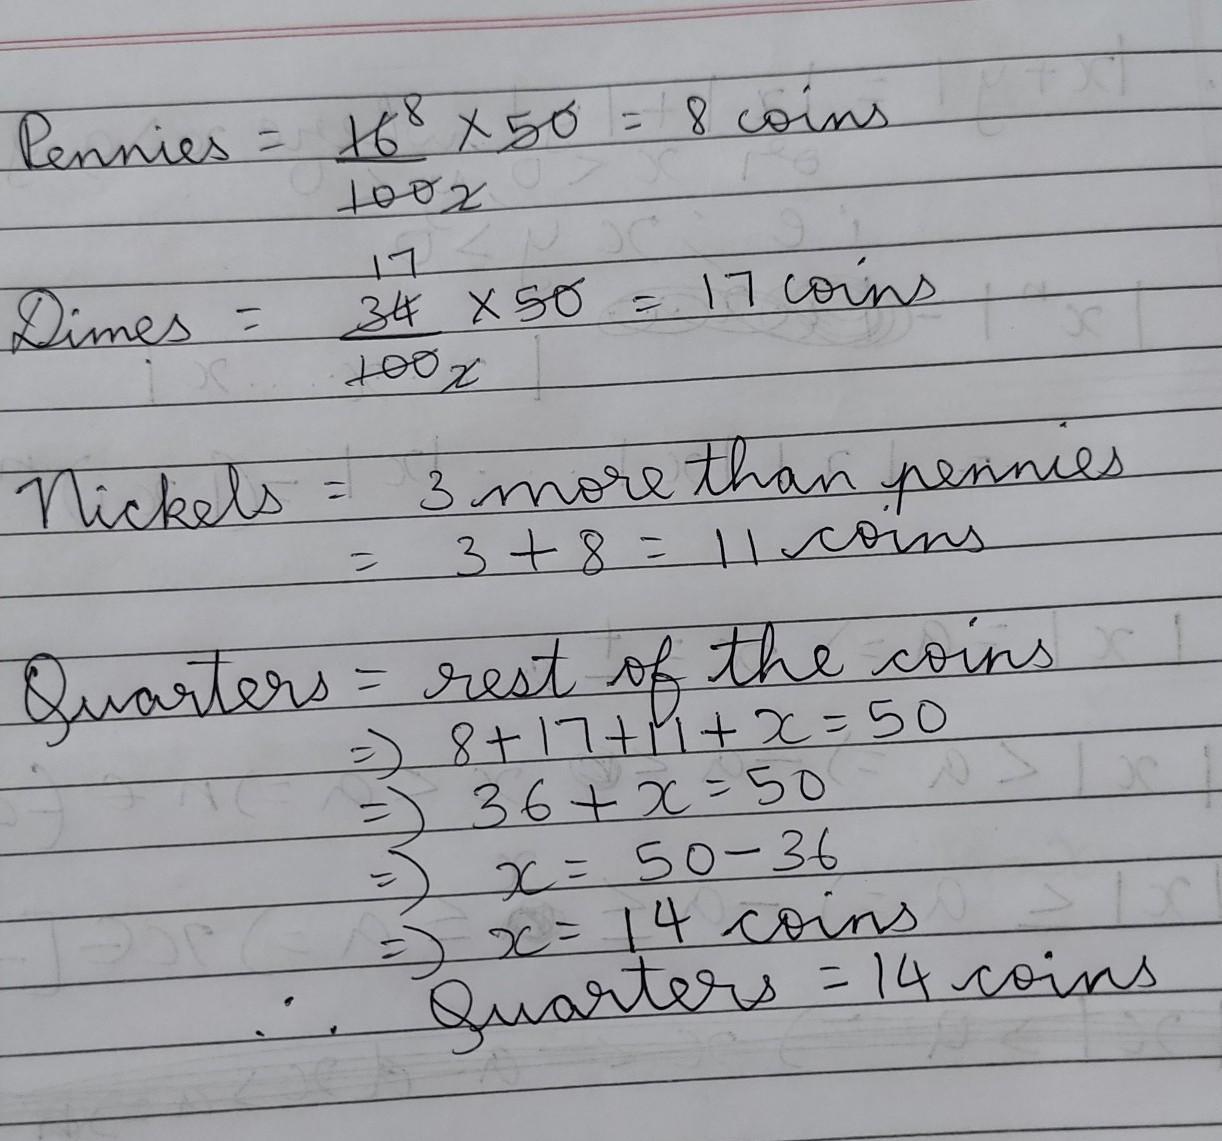 Pennies = 16 8 × 50 = 8 coins
100 2
17
Dimes = 34 × 50 = 17 coins
100 2
Nickels = 3 more than pennies
= 3 + 8 = 11 coins
Quarters = rest of the coins
=) 8 + 17 + 11 + x = 50
=) 36 + x = 50
=) x = 50 - 36
=) x = 14 coins
∴ Quarters = 14 coins